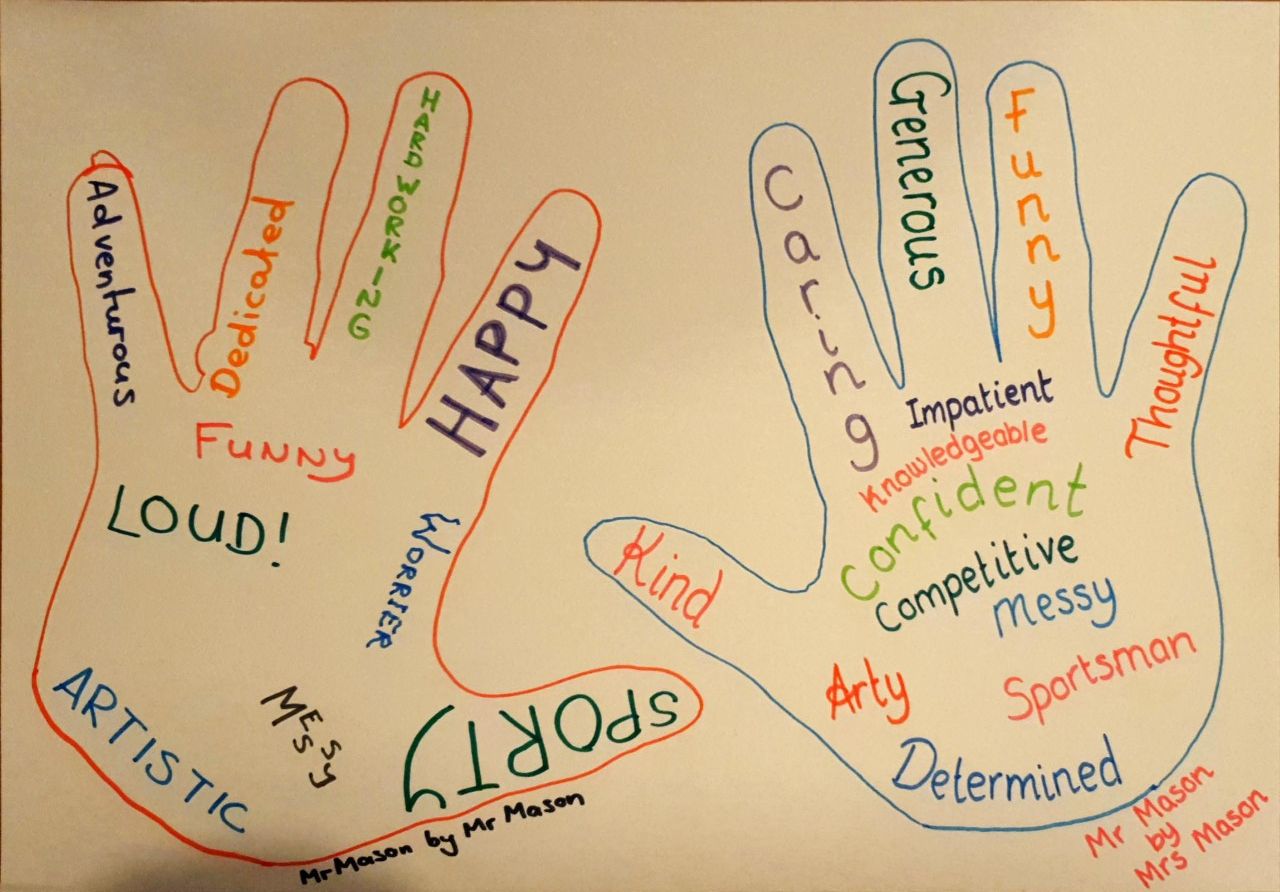 Adventurous
Dedicated
HARD WORKING
HAPPY
FUNNY
LOUD!
WORRIER
ARTISTIC
MESSY
SPORTY
Mr Mason by Mr Mason
Caring
Generous
Funny
Thoughtful
Kind
Impatient
Knowledgeable
Confident
Competitive
Messy
Arty
Sportsman
Determined
Mr Mason
by
Mrs Mason